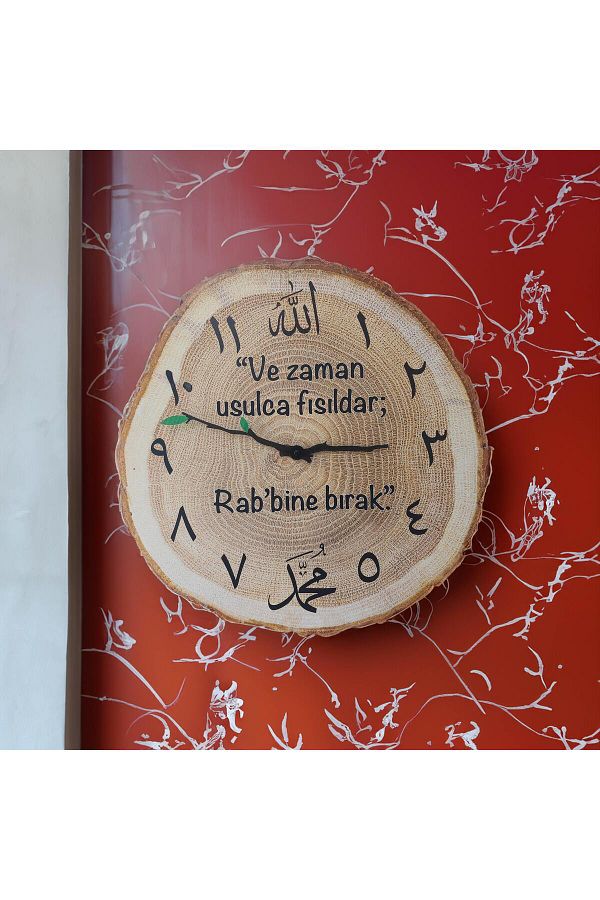 الله
١١
١
"Ve zaman
١٠
٢
usulca fısıldar;
٩
٣
Rab'bine bırak."
٨
٤
٧
٥
محمد